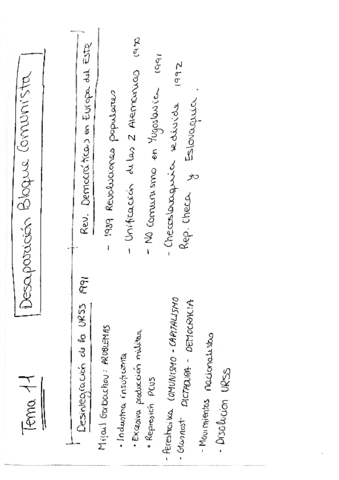 Tema 11
Desaparición Bloque Comunista
Desintegración de la URSS 1991
Mijail Gorbachov: PROBLEMAS
· Industria insuficiente
· Excesiva producción militar
· Represión PCUS
- Perestroika COMUNISMO - CAPITALISMO
- Glasnost DICTADURA - DEMOCRACIA
- Movimientos nacionalistas
- Disolución URSS
Rev. Democráticas en Europa del Este
- 1989 Revoluciones populares
- Unificación de las 2 Alemanias 1990
- NO Comunismo en Yugoslavia 1991
- Checoslovaquia se divide 1992
Rep. Checa y Eslovaquia.